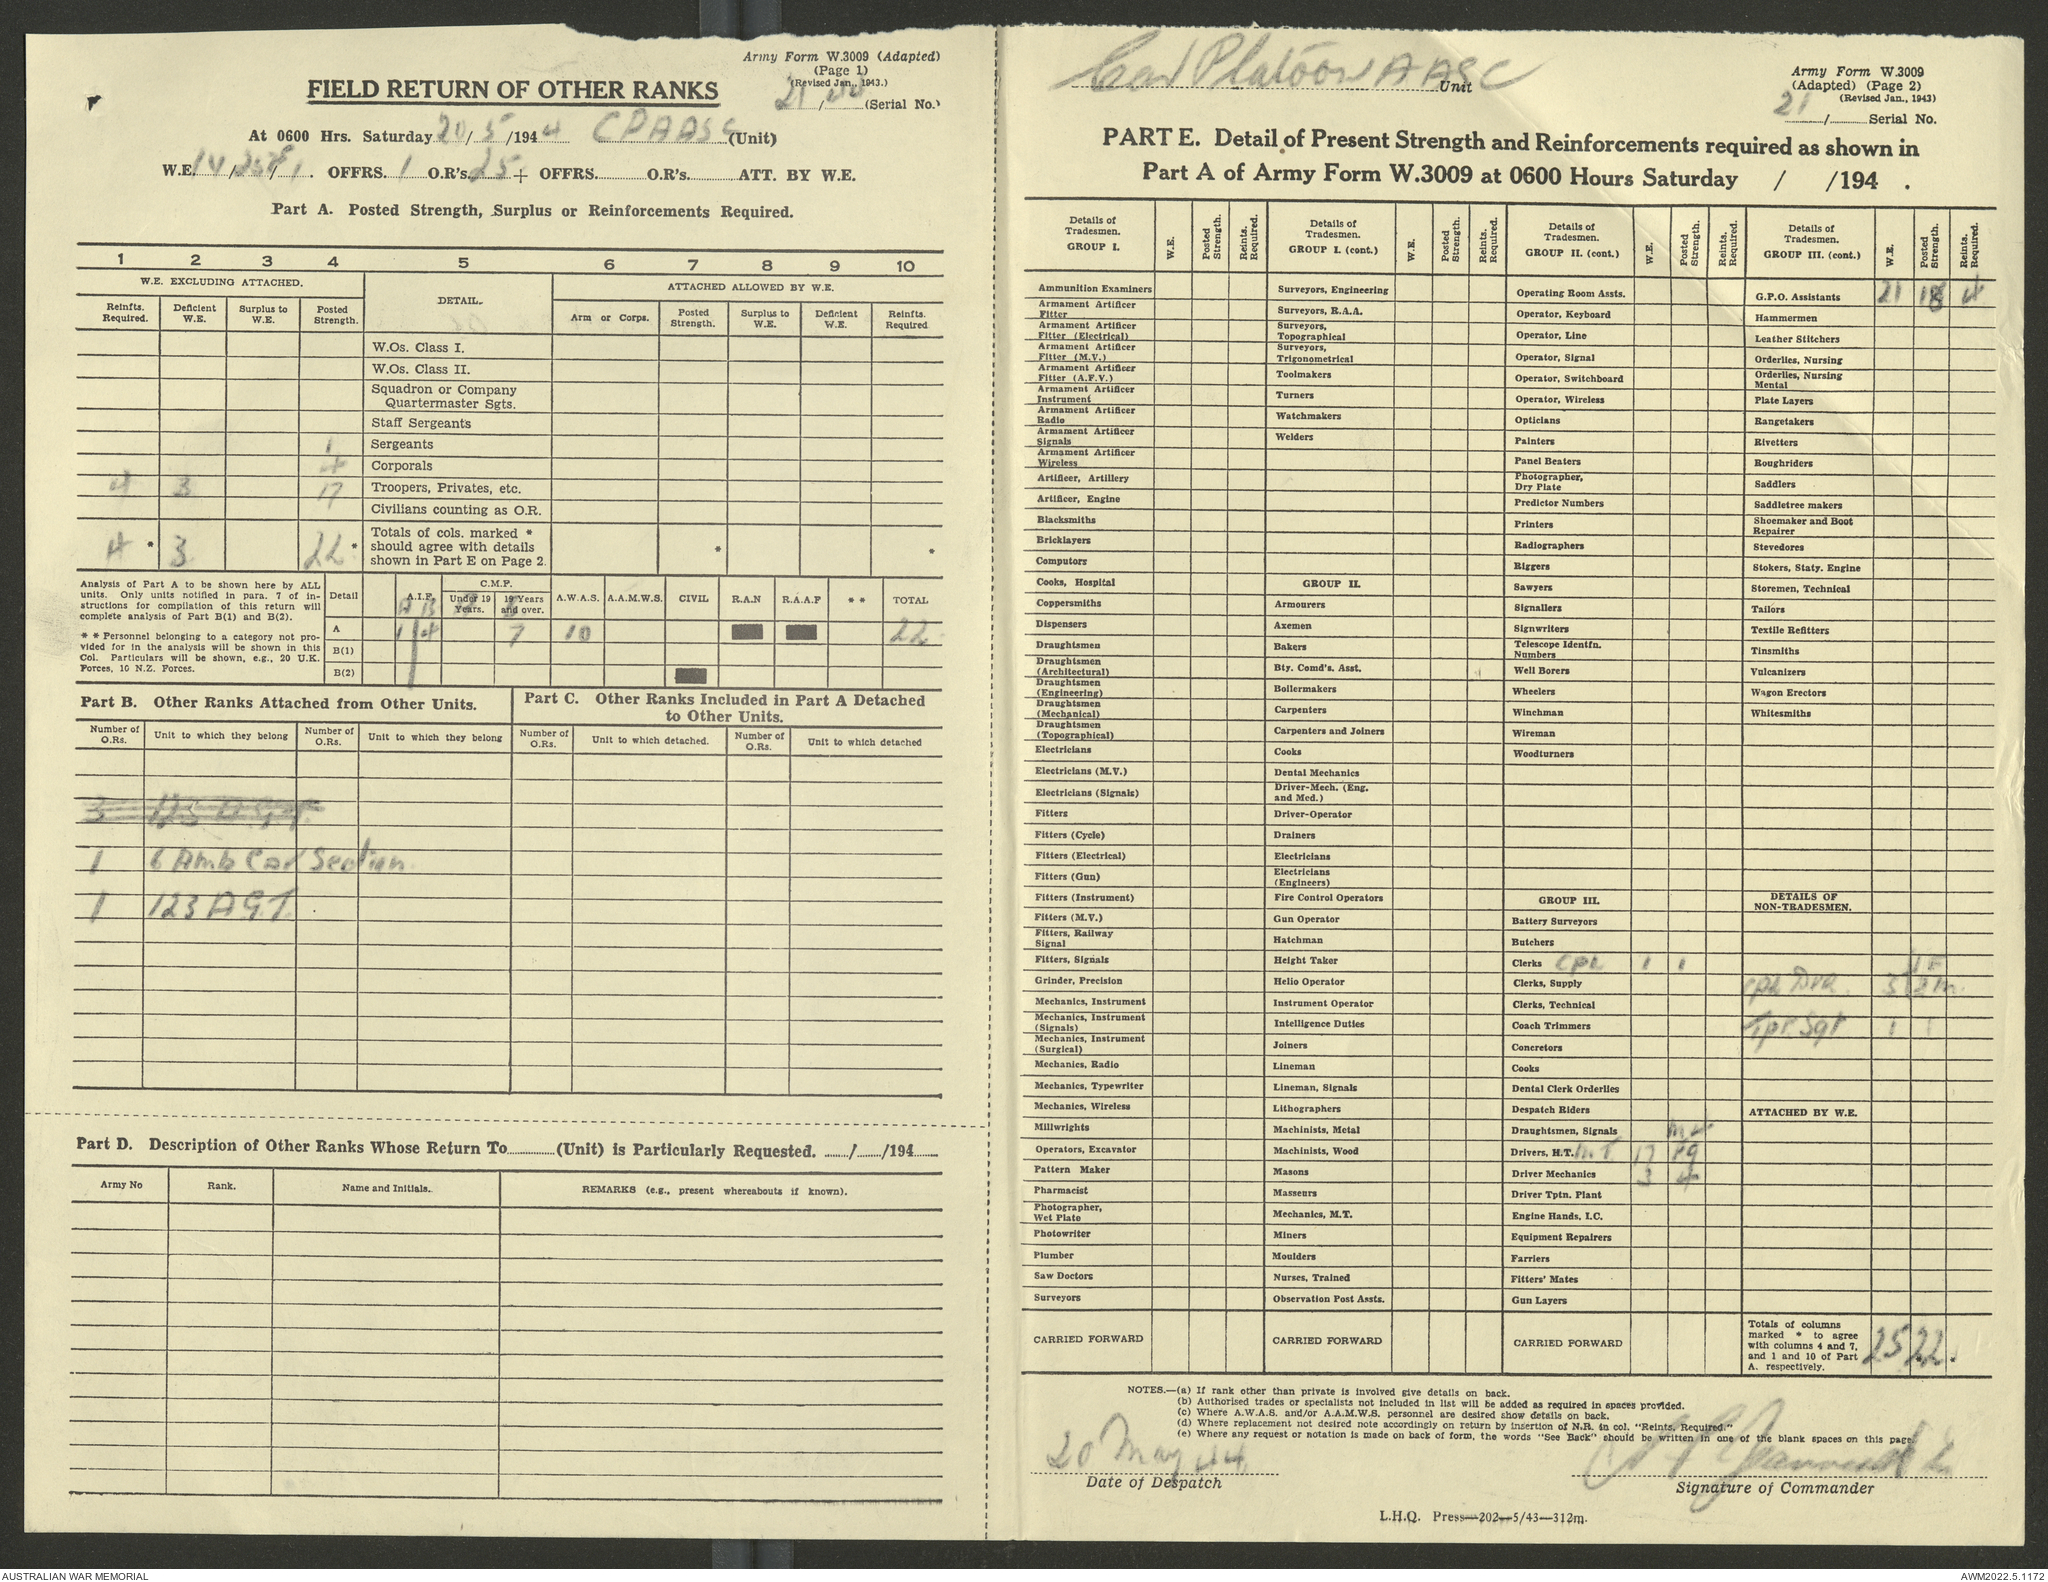 Army Form W.3009 (Adapted)
(Page 1)
(Revised Jan., 1943.)
FIELD RETURN OF OTHER RANKS
21/ (Serial No.)
At 0600 Hrs. Saturday 20/5/1944 CPAASC (Unit)
W.E. 14/ / . OFFRS. 1 O.R's. 25 + OFFRS. O.R's. ATT. BY W.E.
Part A. Posted Strength, Surplus or Reinforcements Required.
1 2 3 4 5 6 7 8 9 10
W.E. EXCLUDING ATTACHED. DETAIL. ATTACHED ALLOWED BY W.E.
Reinfts. Required. Deficient W.E. Surplus to W.E. Posted Strength. Arm or Corps. Posted Strength. Surplus to W.E. Deficient W.E. Reinfts. Required
W.Os. Class I.
W.Os. Class II.
Squadron or Company
Quartermaster Sgts.
Staff Sergeants
1 Sergeants
4 Corporals
4 3 17 Troopers, Privates, etc.
Civilians counting as O.R.
4 * 3 22 * Totals of cols. marked *
should agree with details
shown in Part E on Page 2. * *
Analysis of Part A to be shown here by ALL
units. Only units notified in para. 7 of in-
structions for compilation of this return will
complete analysis of Part B(1) and B(2).
* * Personnel belonging to a category not pro-
vided for in the analysis will be shown in this
Col. Particulars will be shown, e.g., 20 U.K.
Forces, 10 N.Z. Forces.
Detail A.I.F. C.M.F. Under 19 Years. 19 Years and over. A.W.A.S. A.A.M.W.S. CIVIL R.A.N R.A.A.F * * TOTAL
A B
A 1 4 7 10 22
B(1)
B(2)
Part B. Other Ranks Attached from Other Units.
Part C. Other Ranks Included in Part A Detached
to Other Units.
Number of O.Rs. Unit to which they belong Number of O.Rs. Unit to which they belong Number of O.Rs. Unit to which detached. Number of O.Rs. Unit to which detached
1 6 Amb Car Section.
1 123 A.G.T.
Part D. Description of Other Ranks Whose Return To (Unit) is Particularly Requested. / /194
Army No Rank. Name and Initials. REMARKS (e.g., present whereabouts if known).
Car Platoon AASC Unit
Army Form W.3009
(Adapted) (Page 2)
(Revised Jan., 1943)
21 / Serial No.
PART E. Detail of Present Strength and Reinforcements required as shown in
Part A of Army Form W.3009 at 0600 Hours Saturday / /194 .
Details of Tradesmen. GROUP I. W.E. Posted Strength. Reints. Required.
Ammunition Examiners
Armament Artificer Fitter
Armament Artificer Fitter (Electrical)
Armament Artificer Fitter (M.V.)
Armament Artificer Fitter (A.F.V.)
Armament Artificer Instrument
Armament Artificer Radio
Armament Artificer Signals
Armament Artificer Wireless
Artificer, Artillery
Artificer, Engine
Blacksmiths
Bricklayers
Computors
Cooks, Hospital
Coppersmiths
Dispensers
Draughtsmen
Draughtsmen (Architectural)
Draughtsmen (Engineering)
Draughtsmen (Mechanical)
Draughtsmen (Topographical)
Electricians
Electricians (M.V.)
Electricians (Signals)
Fitters
Fitters (Cycle)
Fitters (Electrical)
Fitters (Gun)
Fitters (Instrument)
Fitters (M.V.)
Fitters, Railway Signal
Fitters, Signals
Grinder, Precision
Mechanics, Instrument
Mechanics, Instrument (Signals)
Mechanics, Instrument (Surgical)
Mechanics, Radio
Mechanics, Typewriter
Mechanics, Wireless
Millwrights
Operators, Excavator
Pattern Maker
Pharmacist
Photographer, Wet Plate
Photowriter
Plumber
Saw Doctors
Surveyors
CARRIED FORWARD
Details of Tradesmen. GROUP I. (cont.) W.E. Posted Strength. Reints. Required.
Surveyors, Engineering
Surveyors, R.A.A.
Surveyors, Topographical
Surveyors, Trigonometrical
Toolmakers
Turners
Watchmakers
Welders
GROUP II.
Armourers
Axemen
Bakers
Bty. Comd's. Asst.
Boilermakers
Carpenters
Carpenters and Joiners
Cooks
Dental Mechanics
Driver-Mech. (Eng. and Med.)
Driver-Operator
Drainers
Electricians
Electricians (Engineers)
Fire Control Operators
Gun Operator
Hatchman
Height Taker
Helio Operator
Instrument Operator
Intelligence Duties
Joiners
Lineman
Lineman, Signals
Lithographers
Machinists, Metal
Machinists, Wood
Masons
Masseurs
Mechanics, M.T.
Miners
Moulders
Nurses, Trained
Observation Post Assts.
CARRIED FORWARD
Details of Tradesmen. GROUP II. (cont) W.E. Posted Strength. Reints. Required.
Operating Room Assts.
Operator, Keyboard
Operator, Line
Operator, Signal
Operator, Switchboard
Operator, Wireless
Opticians
Painters
Panel Beaters
Photographer, Dry Plate
Predictor Numbers
Printers
Radiographers
Riggers
Sawyers
Signallers
Signwriters
Telescope Identfn. Numbers
Well Borers
Wheelers
Winchman
Wireman
Woodturners
GROUP III.
Battery Surveyors
Butchers
Clerks CPL 1 1
Clerks, Supply
Clerks, Technical
Coach Trimmers
Concretors
Cooks
Dental Clerk Orderlies
Despatch Riders
Draughtsmen, Signals
Drivers, H.T. M.T. 17
Driver Mechanics 3 4
Driver Tptn. Plant
Engine Hands, I.C.
Equipment Repairers
Farriers
Fitters' Mates
Gun Layers
CARRIED FORWARD
Details of Tradesmen. GROUP III. (cont.) W.E. Posted Strength. Reints. Required.
G.P.O. Assistants 21 18 4
Hammermen
Leather Stitchers
Orderlies, Nursing
Orderlies, Nursing Mental
Plate Layers
Rangetakers
Rivetters
Roughriders
Saddlers
Saddletree makers
Shoemaker and Boot Repairer
Stevedores
Stokers, Staty. Engine
Storemen, Technical
Tailors
Textile Refitters
Tinsmiths
Vulcanizers
Wagon Erectors
Whitesmiths
DETAILS OF NON-TRADESMEN.
1 F
Cpl Dvr. 3 2 m.
Tpt. Sgt 1 1
ATTACHED BY W.E.
Totals of columns
marked * to agree
with columns 4 and 7,
and 1 and 10 of Part
A. respectively. 25 22.
NOTES.—(a) If rank other than private is involved give details on back.
(b) Authorised trades or specialists not included in list will be added as required in spaces provided.
(c) Where A.W.A.S. and/or A.A.M.W.S. personnel are desired show details on back.
(d) Where replacement not desired note accordingly on return by insertion of N.R. in col. "Reints. Required."
(e) Where any request or notation is made on back of form, the words "See Back" should be written in one of the blank spaces on this page.
20 May 44
Date of Despatch
Signature of Commander
L.H.Q. Press—202—5/43—312m.
AUSTRALIAN WAR MEMORIAL
AWM2022.5.1172